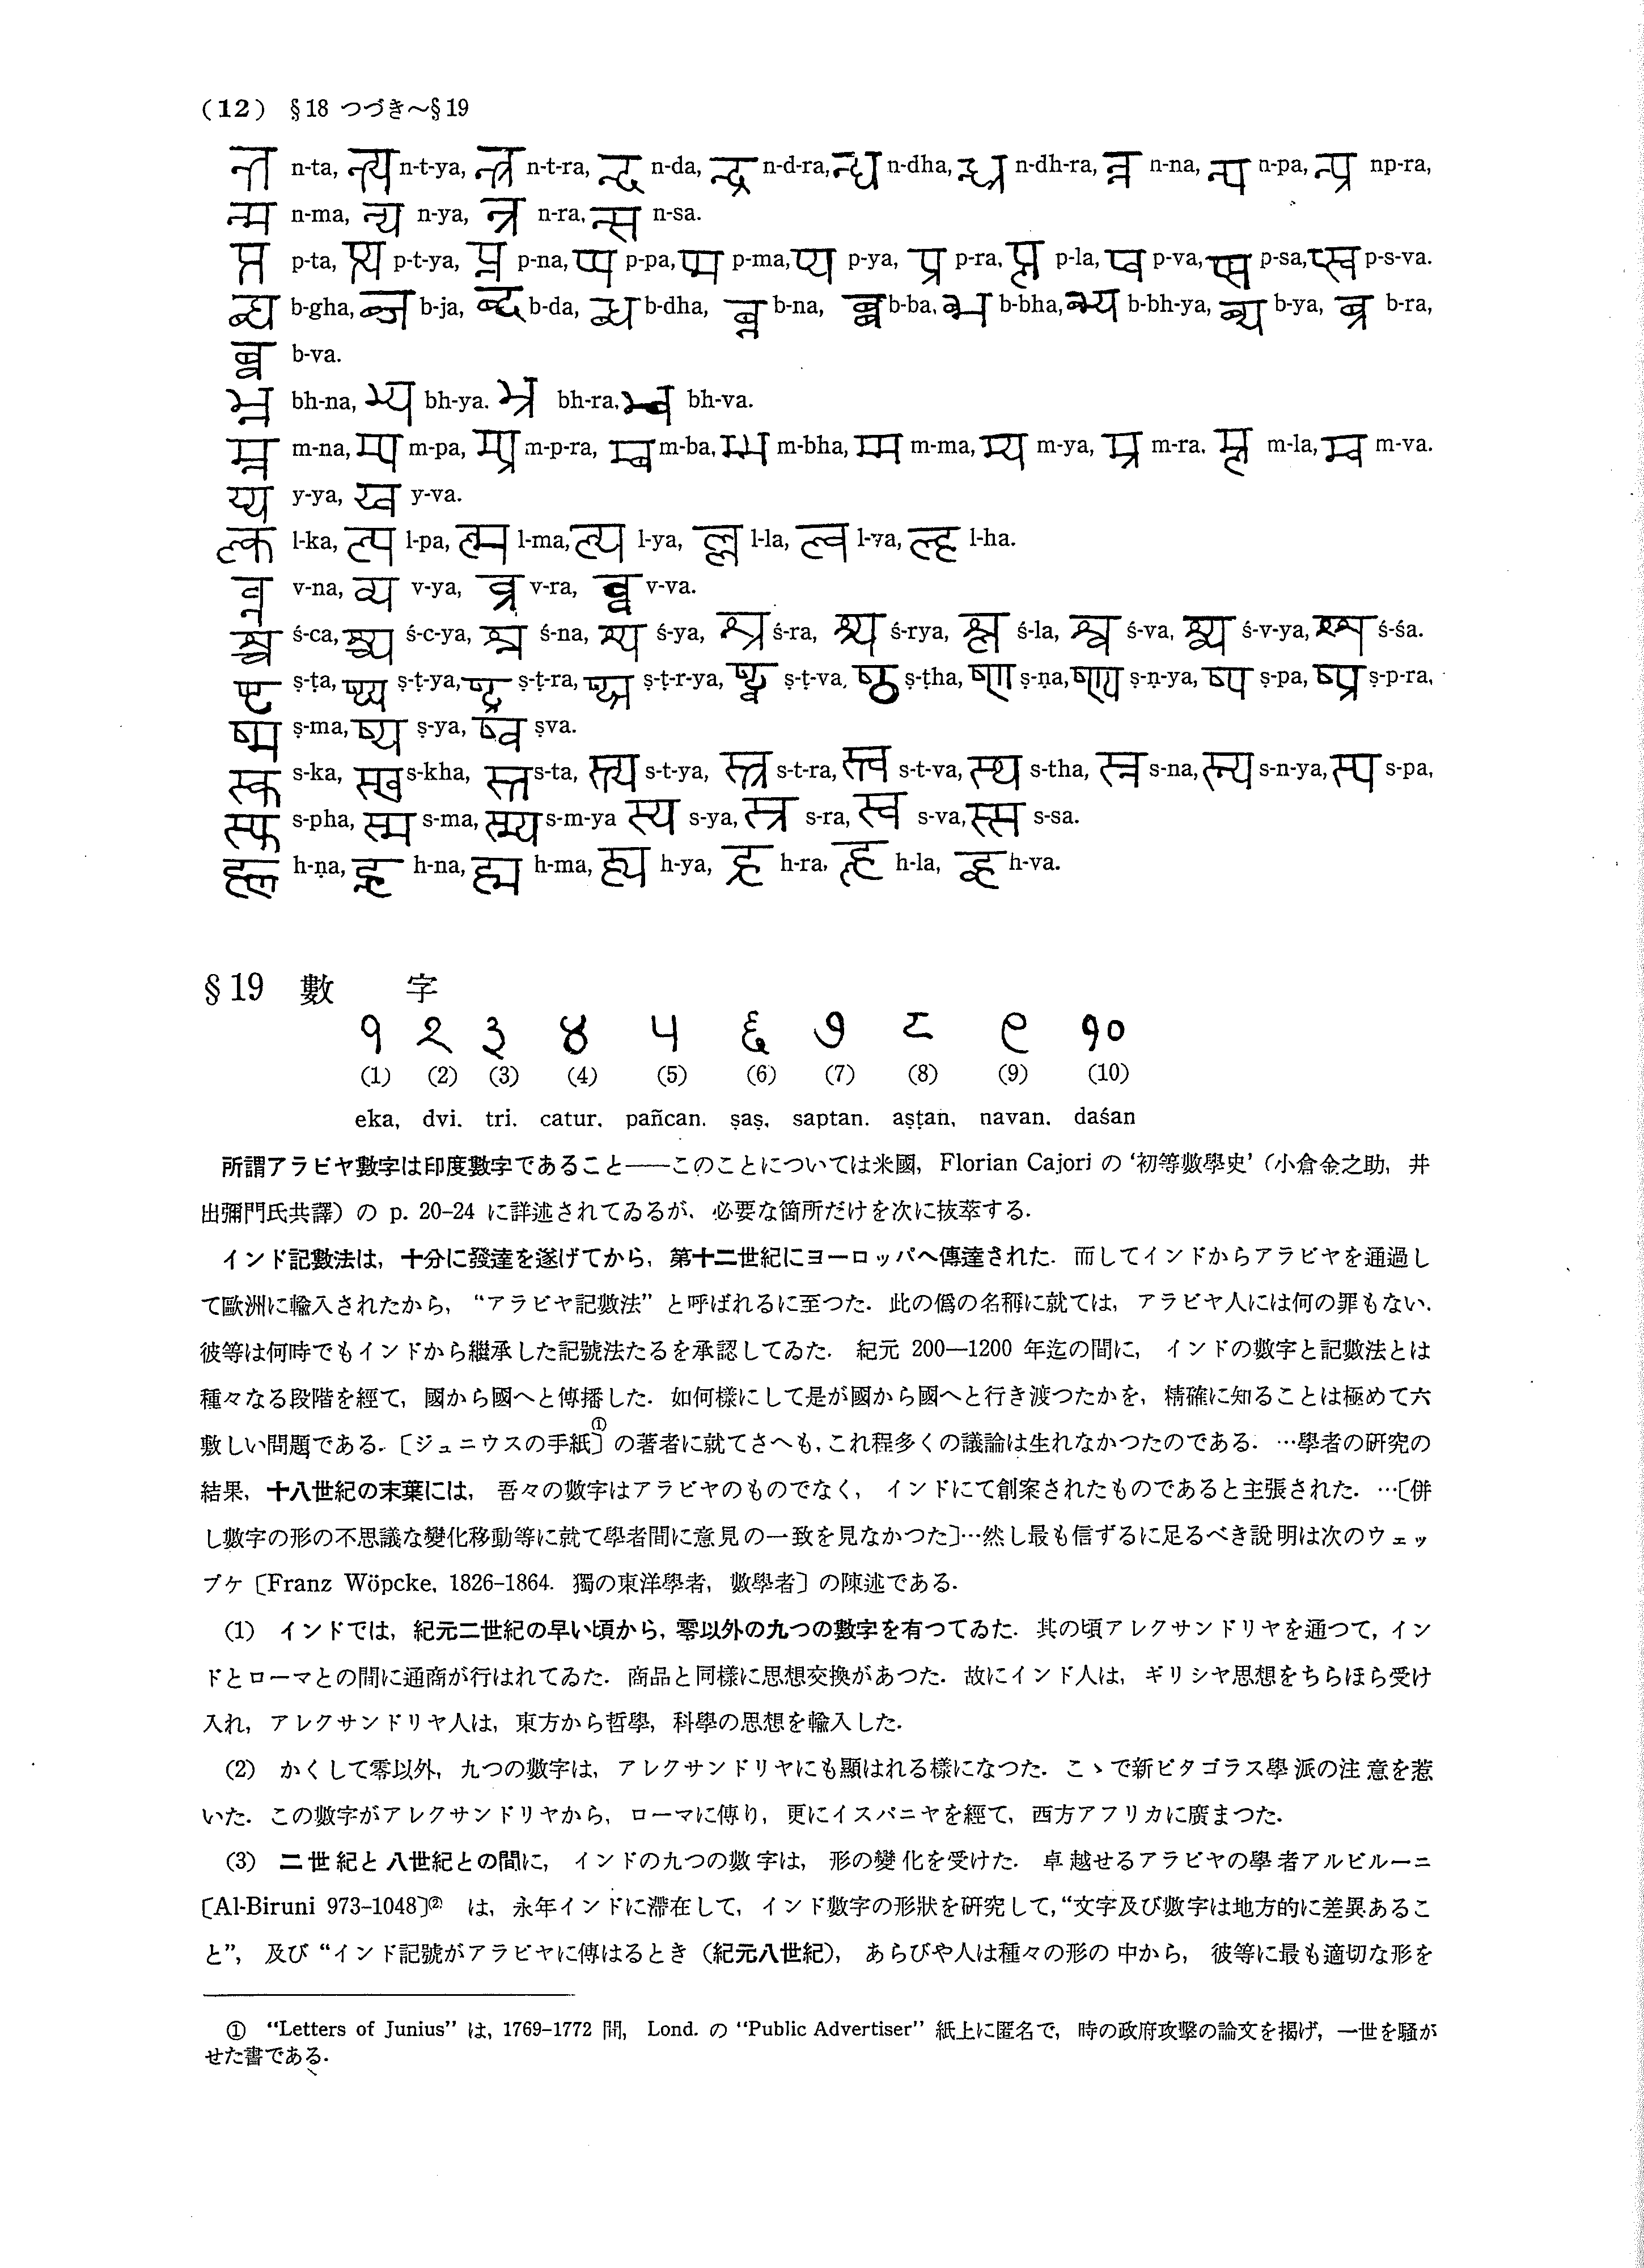 (12) §18 つづき～§19
न्त n-ta, न्त्य n-t-ya, न्त्र n-t-ra, न्द n-da, न्द्र n-d-ra, न्ध n-dha, न्ध्र n-dh-ra, न्न n-na, न्प n-pa, न्प्र np-ra,
न्म n-ma, न्य n-ya, न्र n-ra, न्स n-sa.
प्त p-ta, प्त्य p-t-ya, प्न p-na, प्प p-pa, प्म p-ma, प्य p-ya, प्र p-ra, प्ल p-la, प्व p-va, प्स p-sa, प्स्व p-s-va.
ब्घ b-gha, ब्ज b-ja, ब्द b-da, ब्ध b-dha, ब्न b-na, ब्ब b-ba, ब्भ b-bha, ब्भ्य b-bh-ya, ब्य b-ya, ब्र b-ra,
ब्व b-va.
भ्न bh-na, भ्य bh-ya. भ्र bh-ra, भ्व bh-va.
म्न m-na, म्प m-pa, म्प्र m-p-ra, म्ब m-ba, म्भ m-bha, म्म m-ma, म्य m-ya, म्र m-ra, म्ल m-la, म्व m-va.
य्य y-ya, य्व y-va.
ल्क l-ka, ल्प l-pa, ल्म l-ma, ल्य l-ya, ल्ल l-la, ल्व l-va, ल्ह l-ha.
व्न v-na, व्य v-ya, व्र v-ra, व्व v-va.
श्च ś-ca, श्च्य ś-c-ya, श्न ś-na, श्य ś-ya, श्र ś-ra, श्र्य ś-rya, श्ल ś-la, श्व ś-va, श्व्य ś-v-ya, श्श ś-śa.
ष्ट ṣ-ṭa, ष्ट्य ṣ-ṭ-ya, ष्ट्र ṣ-ṭ-ra, ष्ट्र्य ṣ-ṭ-r-ya, ष्ट्व ṣ-ṭ-va, ष्ठ ṣ-ṭha, ष्ण ṣ-ṇa, ष्ण्य ṣ-ṇ-ya, ष्प ṣ-pa, ष्प्र ṣ-p-ra,
ष्म ṣ-ma, ष्य ṣ-ya, ष्व ṣva.
स्क s-ka, स्ख s-kha, स्त s-ta, स्त्य s-t-ya, स्त्र s-t-ra, स्त्व s-t-va, स्थ s-tha, स्न s-na, स्न्य s-n-ya, स्प s-pa,
स्फ s-pha, स्म s-ma, स्म्य s-m-ya स्य s-ya, स्र s-ra, स्व s-va, स्स s-sa.
ह्ण h-ṇa, ह्न h-na, ह्म h-ma, ह्य h-ya, ह्र h-ra, ह्ल h-la, ह्व h-va.
§19 數 字
१ २ ३ ४ ५ ६ ७ ८ ९ १०
(1) (2) (3) (4) (5) (6) (7) (8) (9) (10)
eka, dvi. tri. catur. pañcan. ṣaṣ, saptan. aṣṭan, navan. daśan
所謂アラビヤ數字は印度數字であること――このことについては米國, Florian Cajori の ‘初等數學史’ (小倉金之助, 井
出彌門氏共譯) の p. 20–24 に詳述されてゐるが, 必要な箇所だけを次に抜萃する.
インド記數法は, 十分に發達を遂げてから, 第十二世紀にヨーロッパへ傳達された. 而してインドからアラビヤを通過し
て歐洲に輸入されたから, “アラビヤ記數法” と呼ばれるに至つた. 此の僞の名稱に就ては, アラビヤ人には何の罪もない.
彼等は何時でもインドから繼承した記號法たるを承認してゐた. 紀元 200―1200 年迄の間に, インドの數字と記數法とは
種々なる段階を經て, 國から國へと傳播した. 如何樣にして是が國から國へと行き渡つたかを, 精確に知ることは極めて六
敷しい問題である. 〔ジュニウスの手紙〕① の著者に就てさへも, これ程多くの議論は生れなかつたのである. …學者の硏究の
結果, 十八世紀の末葉には, 吾々の數字はアラビヤのものでなく, インドにて創案されたものであると主張された. …〔併
し數字の形の不思議な變化移動等に就て學者間に意見の一致を見なかつた〕…然し最も信ずるに足るべき説明は次のウェッ
プケ〔Franz Wöpcke, 1826–1864. 獨の東洋學者, 數學者〕の陳述である.
(1) インドでは, 紀元二世紀の早い頃から, 零以外の九つの數字を有つてゐた. 其の頃アレクサンドリヤを通つて, イン
ドとローマとの間に通商が行はれてゐた. 商品と同樣に思想交換があつた. 故にインド人は, ギリシヤ思想をちらほら受け
入れ, アレクサンドリヤ人は, 東方から哲學, 科學の思想を輸入した.
(2) かくして零以外, 九つの數字は, アレクサンドリヤにも顯はれる樣になつた. こゝで新ピタゴラス學派の注意を惹
いた. この數字がアレクサンドリヤから, ローマに傳り, 更にイスパニヤを經て, 西方アフリカに廣まつた.
(3) 二世紀と八世紀との間に, インドの九つの數字は, 形の變化を受けた. 卓越せるアラビヤの學者アルビルーニ
〔Al-Biruni 973–1048〕② は, 永年インドに滯在して, インド數字の形狀を硏究して, “文字及び數字は地方的に差異あるこ
と”, 及び “インド記號がアラビヤに傳はるとき (紀元八世紀), あらびや人は種々の形の中から, 彼等に最も適切な形を
① “Letters of Junius” は, 1769–1772 間, Lond. の “Public Advertiser” 紙上に匿名で, 時の政府攻擊の論文を揭げ, 一世を騷が
せた書である.